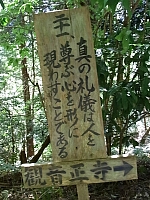 王
真の礼儀は人と
尊ぶ心を形に
現わすことくである
観音正寺→